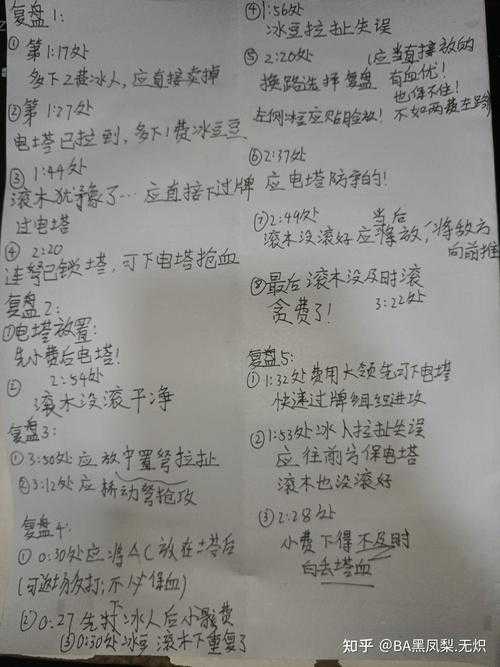 复盘1:
① 第1:17处
多下2费冰人,应直接卖掉
② 第1:27处
电塔已拉到,多下1费冰豆豆
③ 1:44处
滚木犹豫了… 应直接下过牌
过电塔
④ 2:20
连弩已锁塔,可下电塔抢血
复盘2:
①电塔放置:
先小费后电塔!
② 2:54处
滚木没滚干净
复盘3:
①3:50处应放中置弩拉扯
②3:12处应桥动弩抢攻
复盘4:
①0:30处应将△C放在塔后
(可返场放打,不必保血)
②0:27先打冰人后小骷费
③0:30处冰豆滚木下重复了
④1:56处
冰豆拉扯失误
⑤ 2:20处 (应当直接放的
换路选择复盘 有血优!
也保不住!
左侧冰豆应贴脸放! 不如两费左路
⑥ 2:37处
应电塔防守的!
⑦2:49处 当后
滚木没滚好应将放,将敌方
向前推
⑧最后滚木没及时滚
贪费了! 3:22处
复盘5:
①1:32处费用大领先可下电塔
快速过牌组织进攻
②1:53处冰人拉扯失误
应往前方保电塔
滚木也没滚好
③ 2:28处
小费下得不及时
白丢塔血
知乎 @BA黑凤梨.无炽